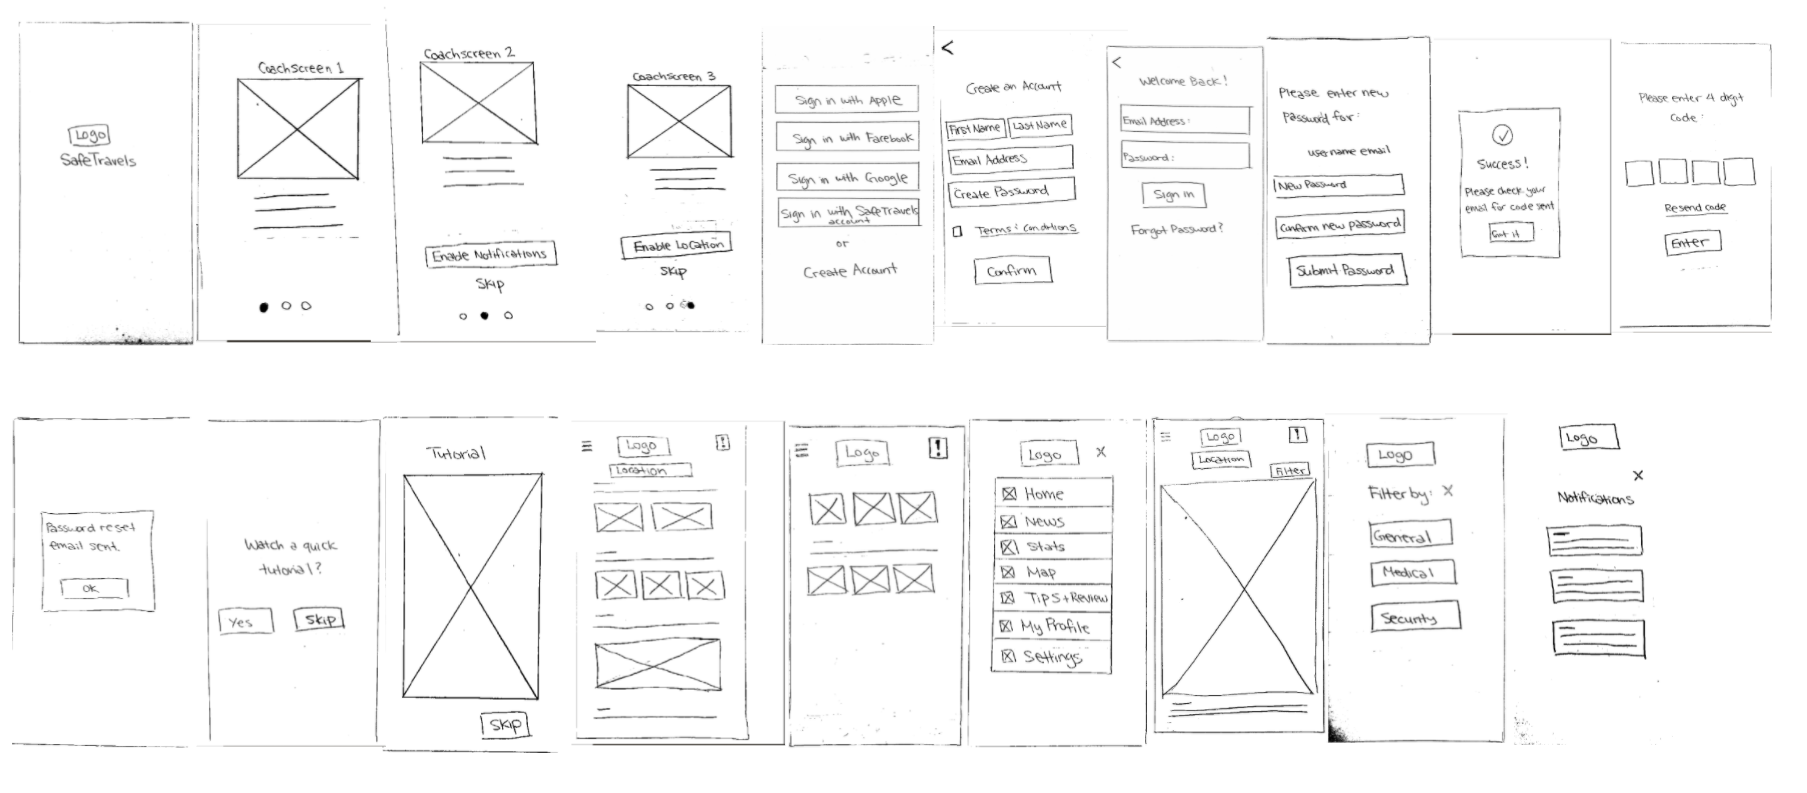 Logo
SafeTravels
Coachscreen 1
Coachscreen 2
Enable Notifications
Skip
Coachscreen 3
Enable Location
Skip
Sign in with Apple
Sign in with Facebook
Sign in with Google
Sign in with SafeTravels
account
or
Create Account
<
Create an Account
First Name
Last Name
Email Address
Create Password
Terms & conditions
Confirm
<
Welcome Back!
Email Address:
Password:
Sign in
Forgot Password?
Please enter new
password for:
username email
New Password
Confirm new password
Submit Password
Success!
Please check your
email for code sent
Got it
Please enter 4 digit
code:
Resend code
Enter
Password reset
email sent.
OK
Watch a quick
tutorial?
Yes
Skip
Tutorial
Skip
Logo
!
Location
Logo
!
Logo
X
Home
News
Stats
Map
Tips + Review
My Profile
Settings
Logo
!
Location
Filter
Logo
Filter by: X
General
Medical
Security
Logo
X
Notifications